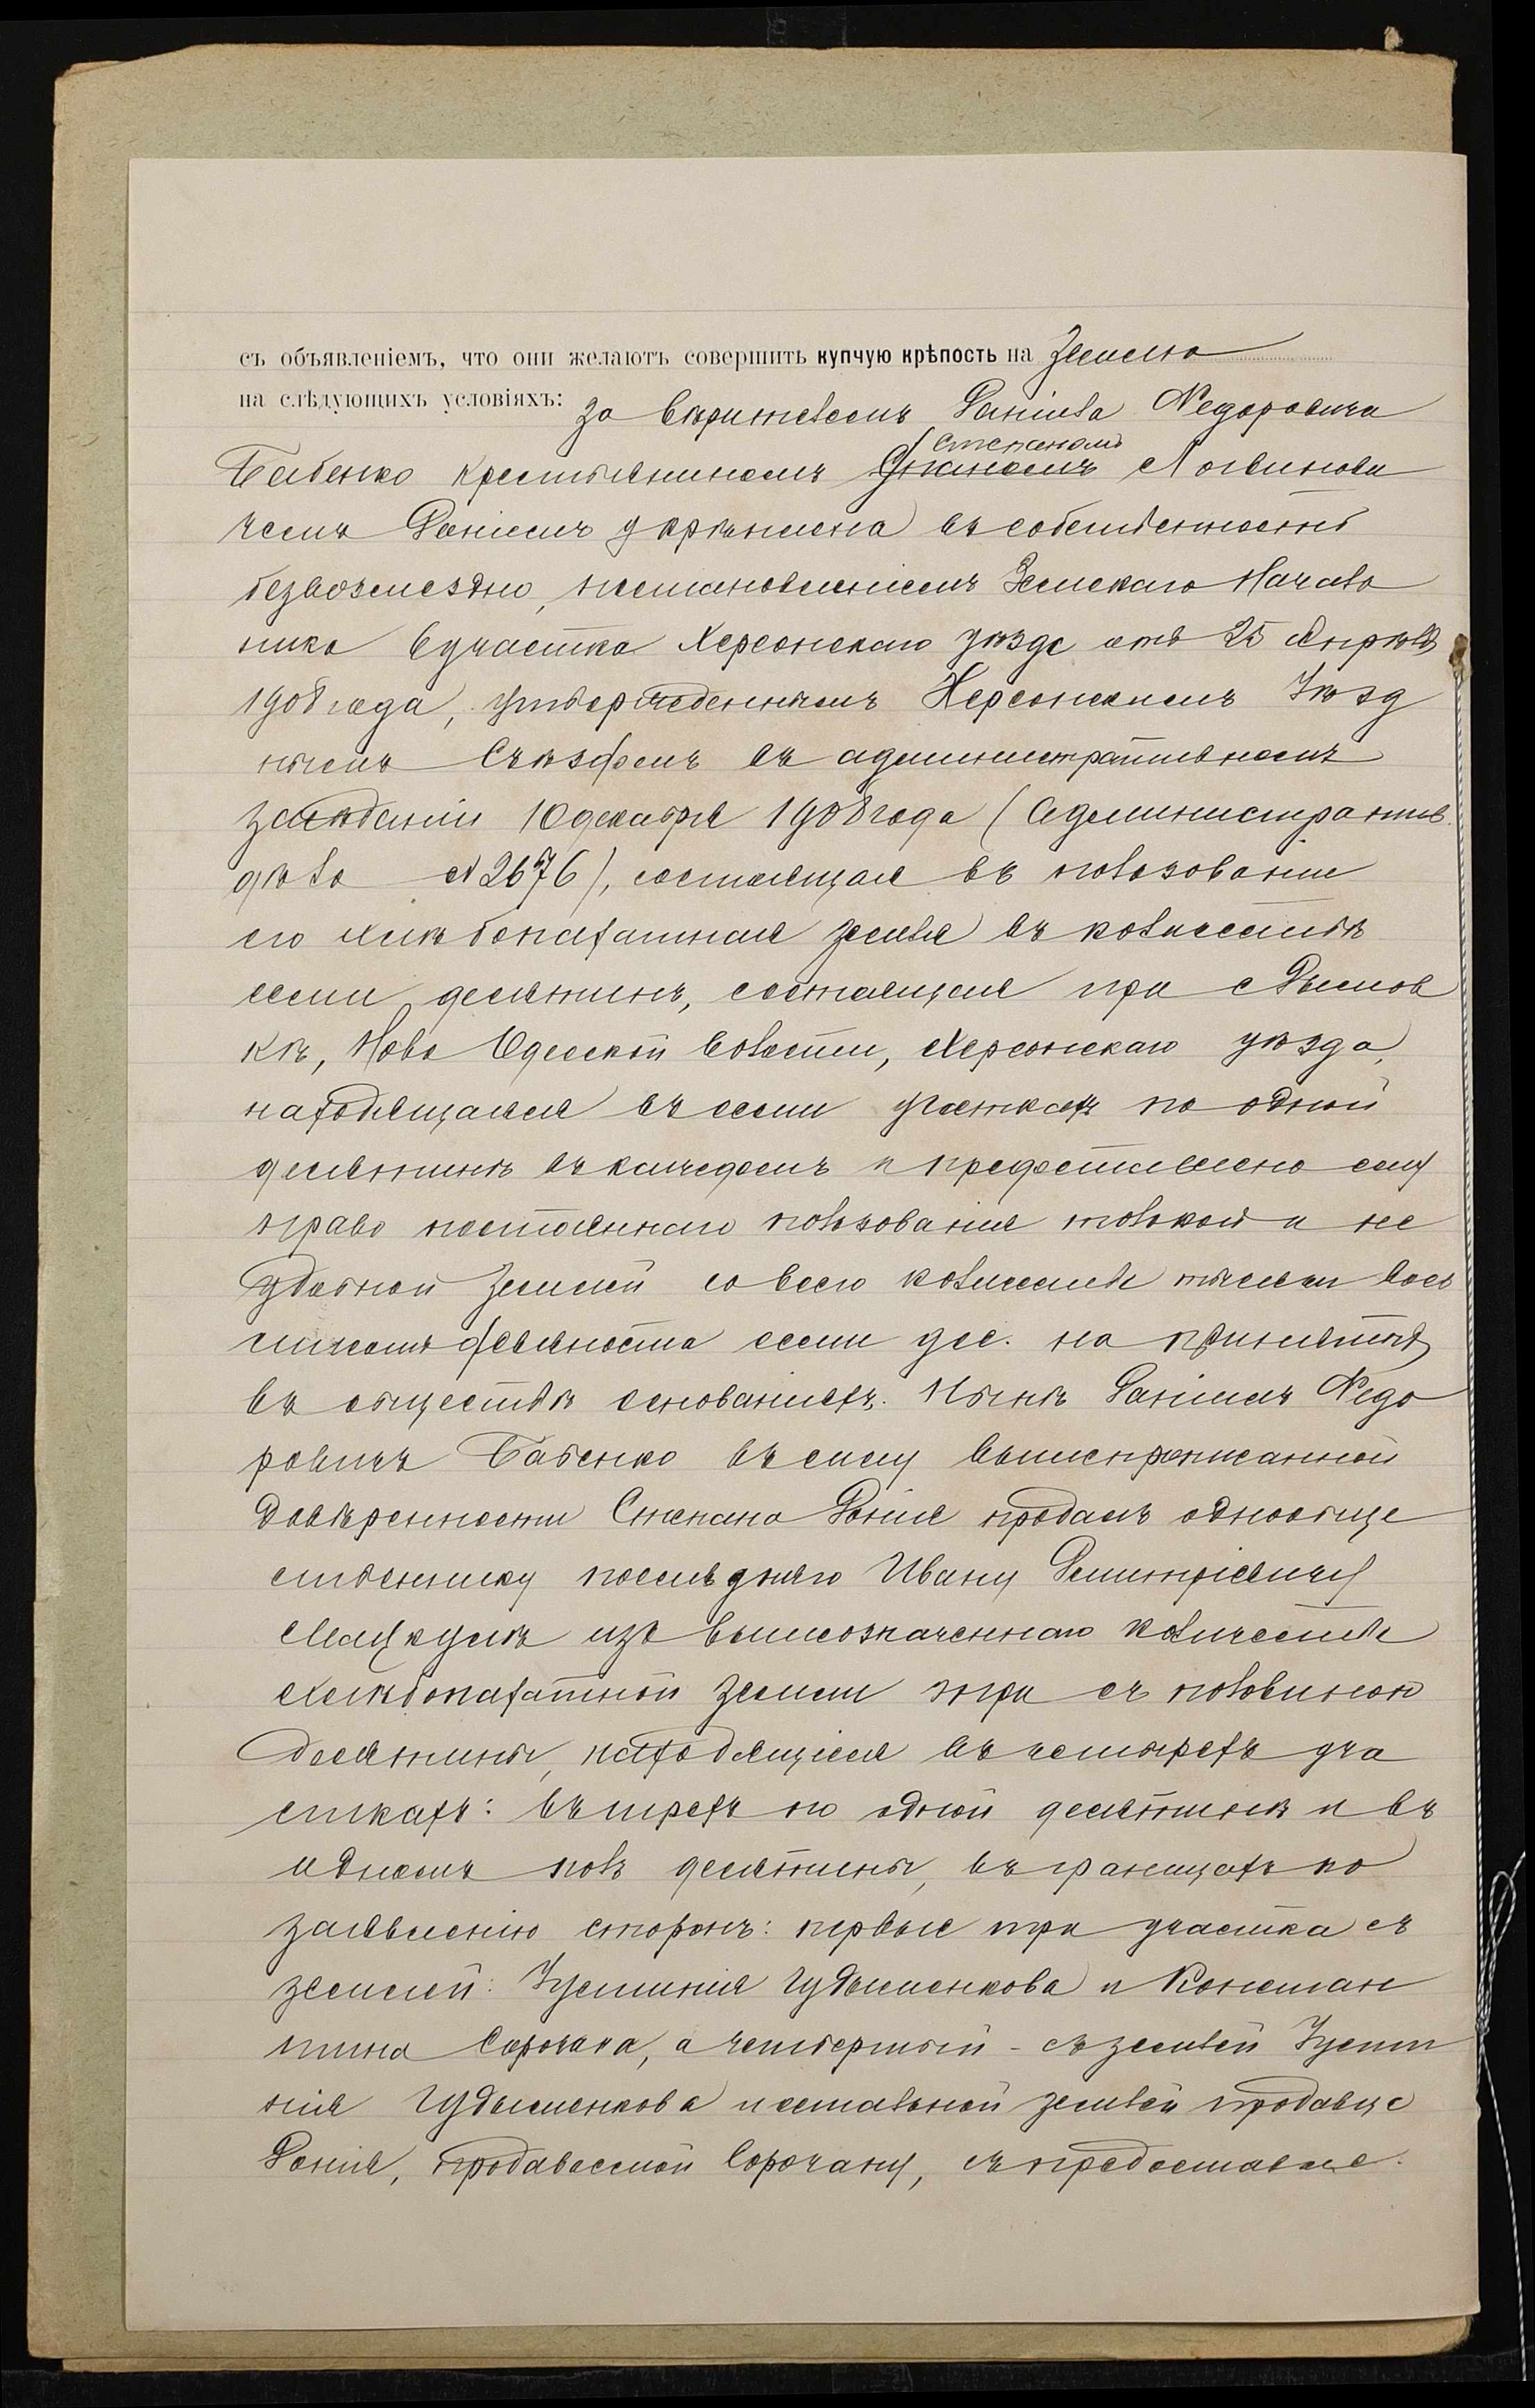 съ объявленіемъ, что они желаютъ совершить купчую крѣпость на Землю
на слѣдующихъ условіяхъ: За вѣрителемъ Даніила Ѳедоровича
Бабенко крестьяниномъ Степаномъ Логвинови
чемъ укрѣплена въ собственность
безвозмездно, постановленіемъ Земскаго Началь
ника 6 участка Херсонскаго уѣзда отъ 25 Апрѣля
1908 года, утвержденнымъ Херсонскимъ Уѣзд
нымъ Съѣздомъ въ административномъ
засѣданіи 10 декабря 1908 года (Административ.
дѣло № 2676), состоящая въ пользованіи
его хлѣбопахатная земля въ количествѣ
семи десятинъ, состоящая при с Дымов
кѣ, Ново Одесской Волости, Херсонскаго уѣзда,
находящаяся въ семи участкахъ по одной
десятинѣ въ каждомъ и предоставлено ему
право постояннаго пользованія толокой и не
удобной землей со всего количества тысячи восъ
мисотъ девяноста семи дес. на принятыхъ
въ обществѣ основаніяхъ. Нынѣ Даніилъ Ѳедо
ровичъ Бабенко въ силу вышепрописанной
довѣренности Степана Донія продалъ однообще
ственнику послѣдняго Ивану Димитріевичу
изъ вышеозначеннаго количества
хлѣбопахатной земли три съ половиною
десятины, находящіяся въ четырехъ уча
сткахъ: въ трехъ по одной десятинѣ и въ
одномъ полъ десятины, въ границахъ по
заявленію сторонъ: первые три участка съ
землей: Іустинія Гудыменкова и Констан
тина Сорочана, а четвертый - съ землей Іусти
нія Гудыменкова и остальной землей продавца
Донія, продаваемой Сорочану, съ предоставле-